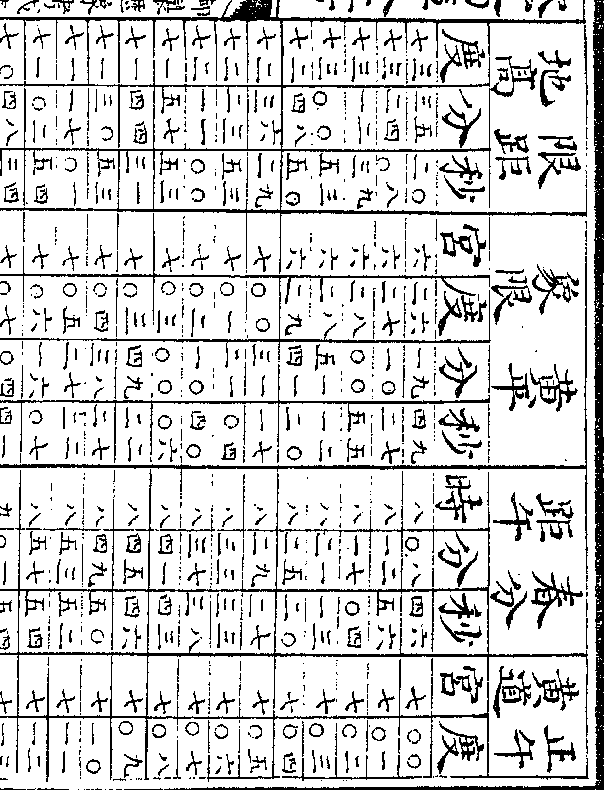 限距地高 黃平象限 春分距午 正午黃道
度 分 秒 宮 度 分 秒 時 分 秒 宮 度
七三 三五 二〇 六 二六 一九 四九 八 〇八 四六 七 〇〇
七三 二四 〇八 六 二七 一〇 二七 八 一二 五六 七 〇一
七三 一二 三九 六 二八 〇〇 五五 八 一七 〇四 七 〇二
七三 〇〇 五三 六 二八 五一 一二 八 二一 一三 七 〇三
七二 四八 五〇 六 二九 四一 二〇 八 二五 二〇 七 〇四
七二 三六 二九 七 〇〇 三一 一七 八 二九 二七 七 〇五
七二 二三 五三 七 〇一 二一 〇四 八 三三 三三 七 〇六
七二 一一 〇〇 七 〇二 一〇 四〇 八 三七 三八 七 〇七
七一 五七 五三 七 〇三 〇〇 〇六 八 四一 四三 七 〇八
七一 四四 三一 七 〇三 四九 二二 八 四五 四六 七 〇九
七一 三〇 五三 七 〇四 三八 二七 八 四九 五〇 七 一〇
七一 一七 〇一 七 〇五 二七 二二 八 五三 五二 七 一一
七一 〇二 五四 七 〇六 一六 〇七 八 五七 五四 七 一二
七〇 四八 三四 七 〇七 〇四 四一 九 〇一 五四 七 一三